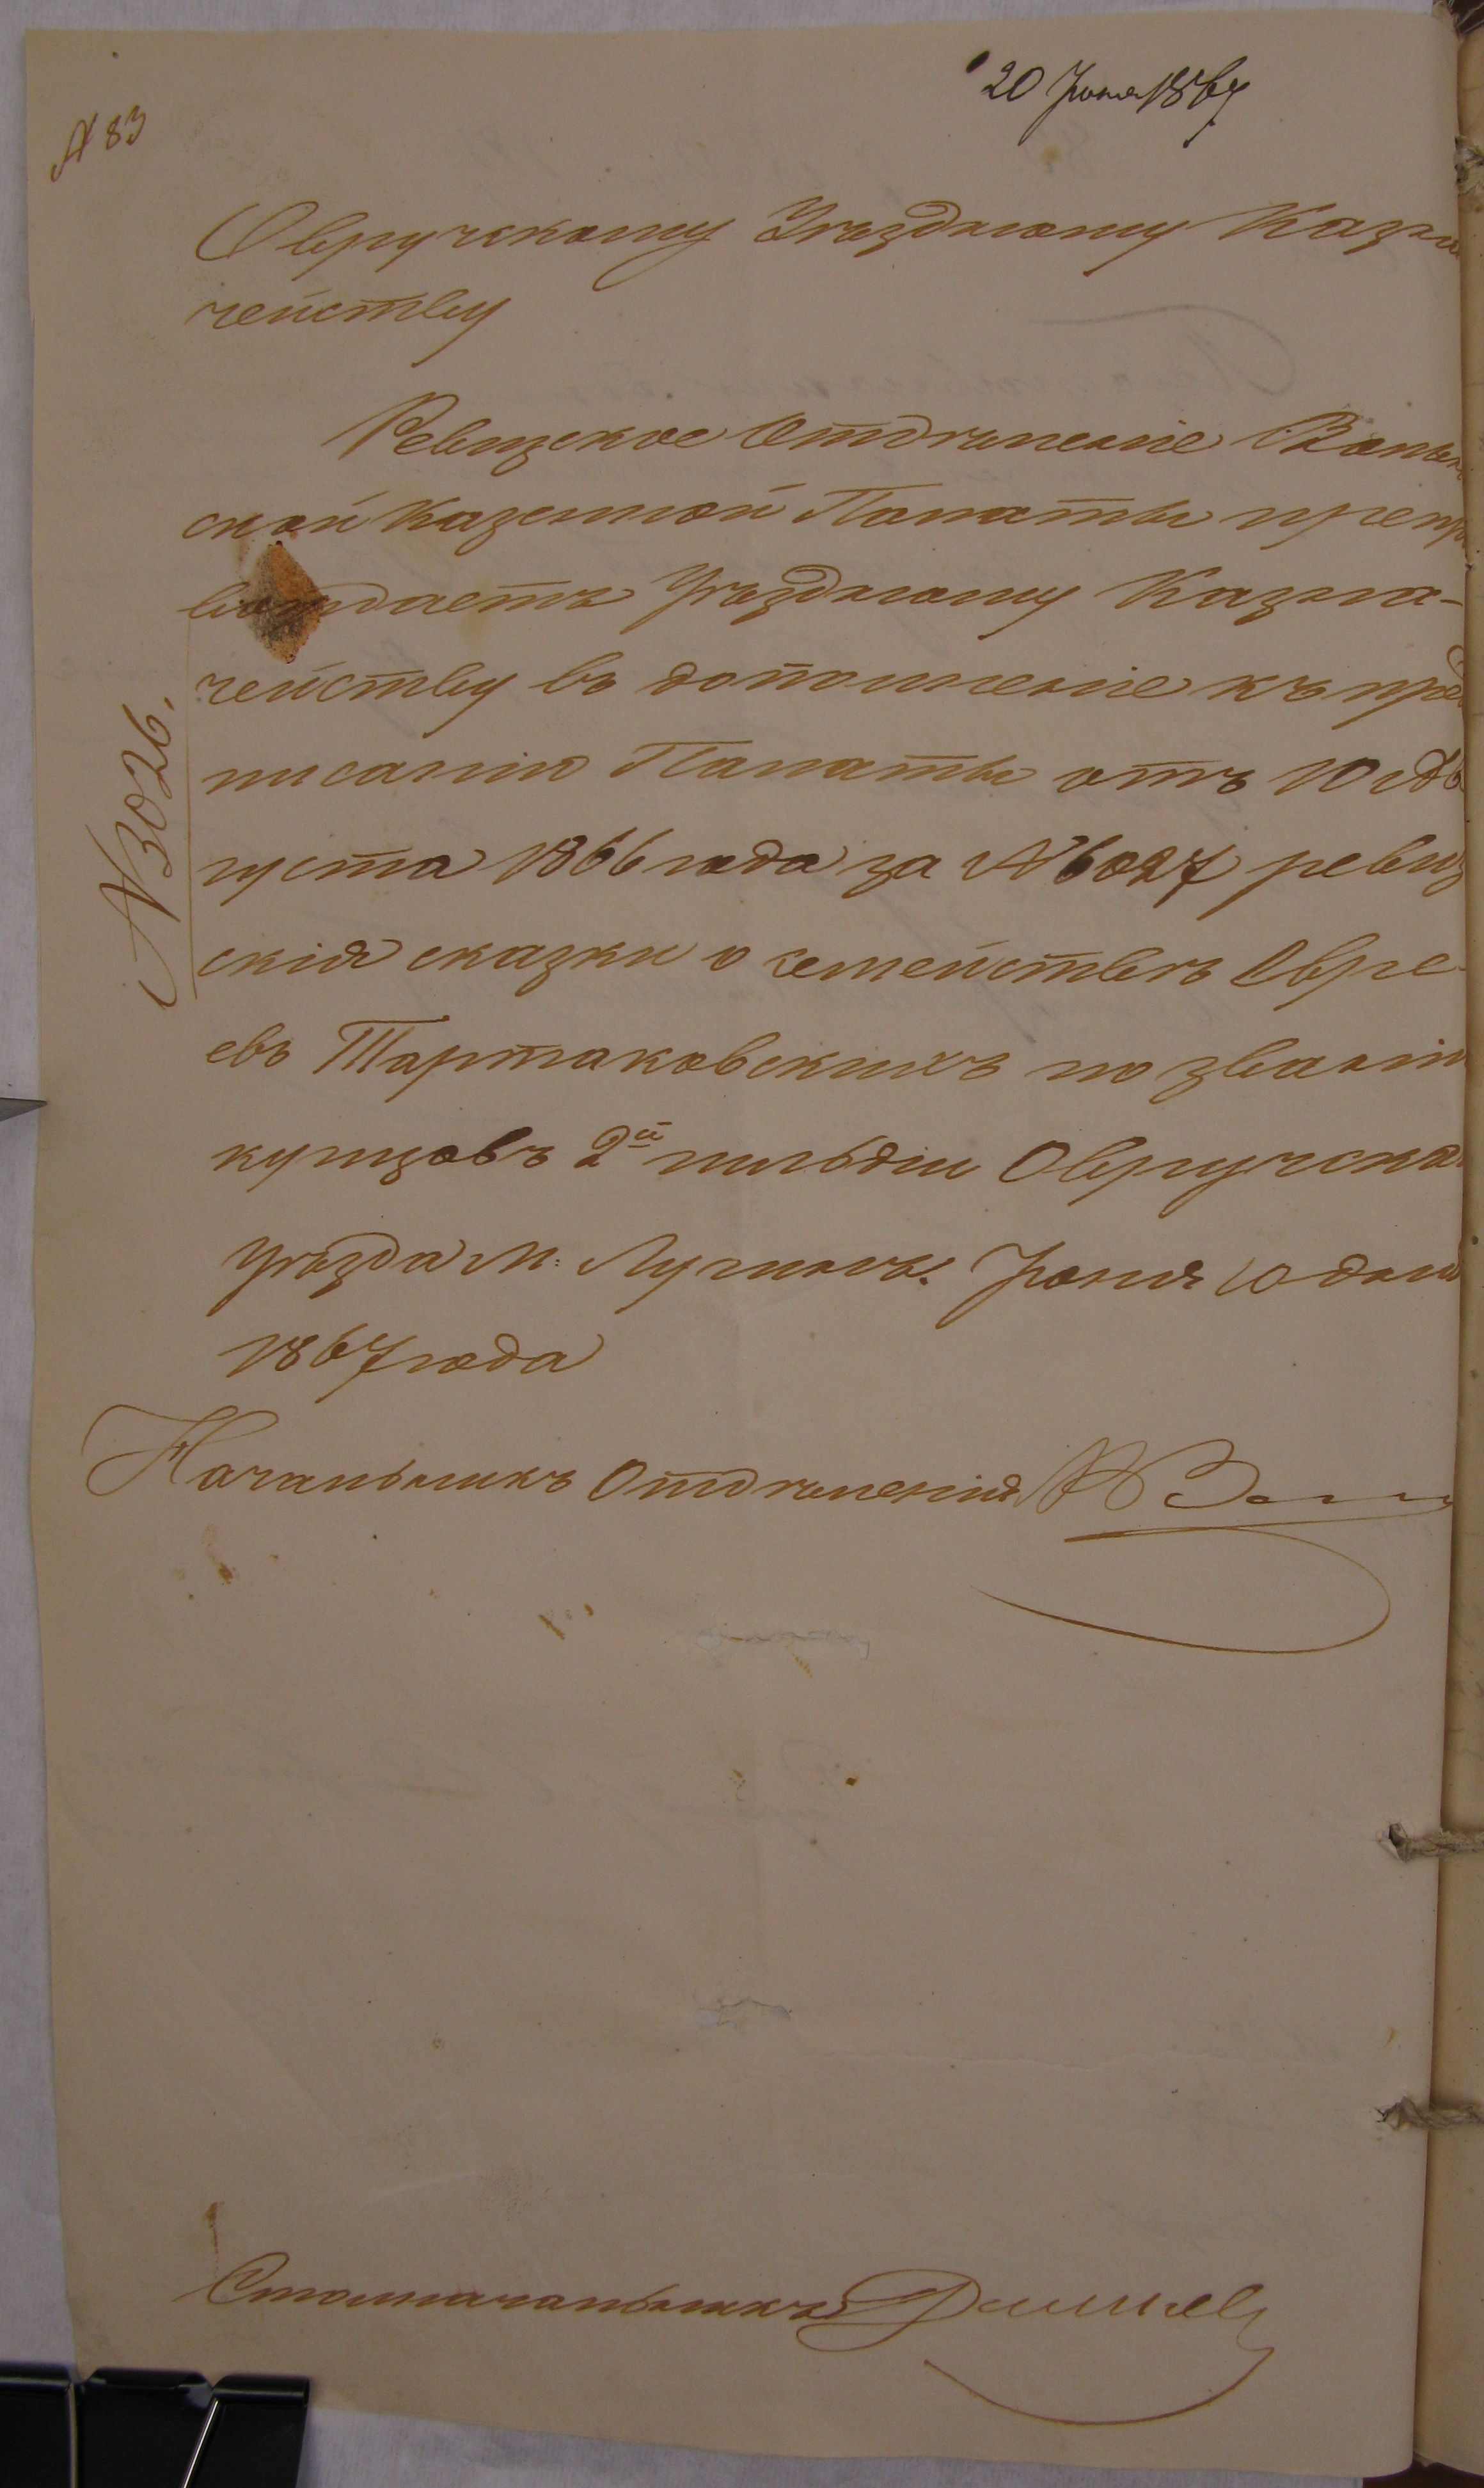 20 Июня 1867
№ 83
Овручскому Уѣздному Казна
чейству
Ревизское Отдѣленіе Волын
ской Казенной Палаты препро
вождаетъ Уѣздному Казна-
чейству въ дополненіе къ пред
писанію Палаты отъ 10 Ав
густа 1866 года за № 6027 ревиз
скія сказки о семействѣ Евре-
евъ Тартаковскихъ по званію
купцовъ 2й гильдіи Овручска
Уѣзда м: Лугинъ. Июня 10 дня
1867 года
№ 3026.
Начальникъ Отдѣленія
Столоначальникъ